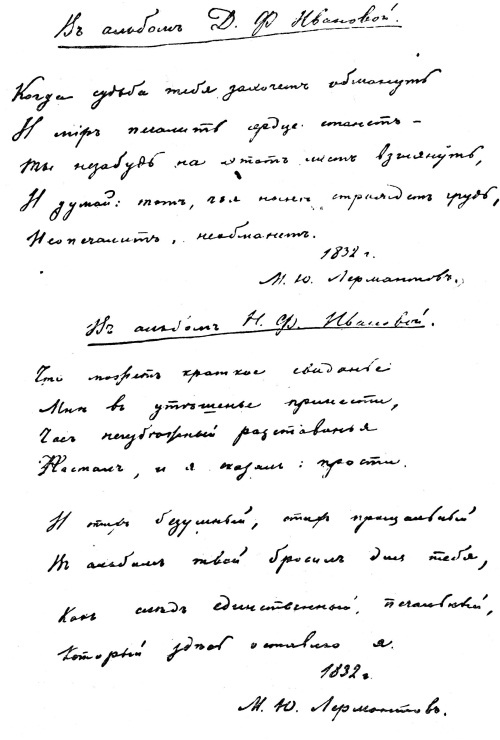 Въ альбомъ Д. Ф. Ивановой.
Когда судьба тебя захочетъ обмануть
И міръ печалить сердце станетъ –
Ты незабудь на этотъ листъ взглянуть,
И думай: тотъ, чья ныне страждетъ грудь,
Неопечалитъ, необманетъ.
1832 г.
М. Ю. Лермантовъ.
Въ альбомъ Н. Ф. Ивановой.
Что можетъ краткое свиданье
Мнѣ въ утѣшенье принести,
Часъ неизбѣжный разставанья
Насталъ, и я сказалъ: прости.
И стихъ безумный, стихъ прощальный
Въ альбомъ твой бросилъ для тебя,
Какъ слѣдъ единственный, печальный,
Который здѣсь оставлю я.
1832 г.
М. Ю. Лермонтовъ.